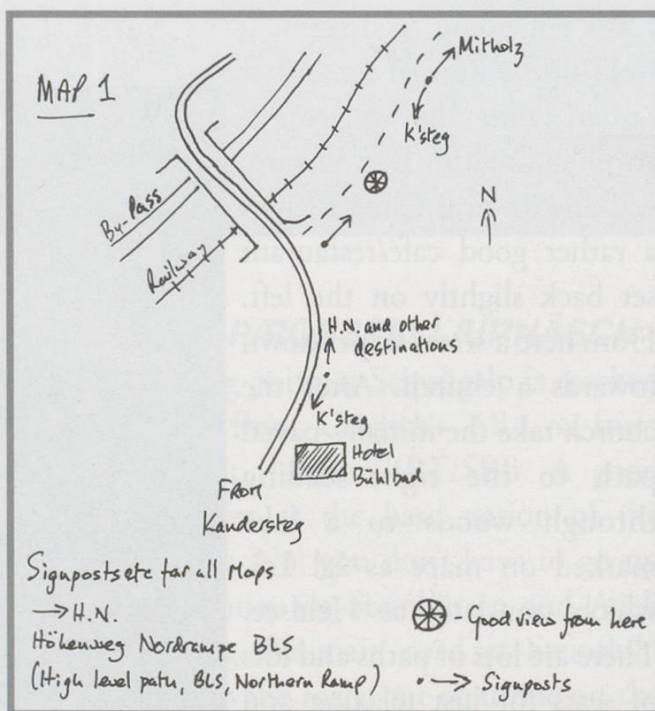 MAP 1
Mitholz
K'steg
N
By-Pass
Railway
H.N. and other
destinations
K'steg
Hotel
Bühlbad
From
Kandersteg
Signposts etc for all Maps
→ H.N.
Höhenweg Nordrampe BLS
(High level path, BLS, Northern Ramp)
- Good view from here
• → Signposts